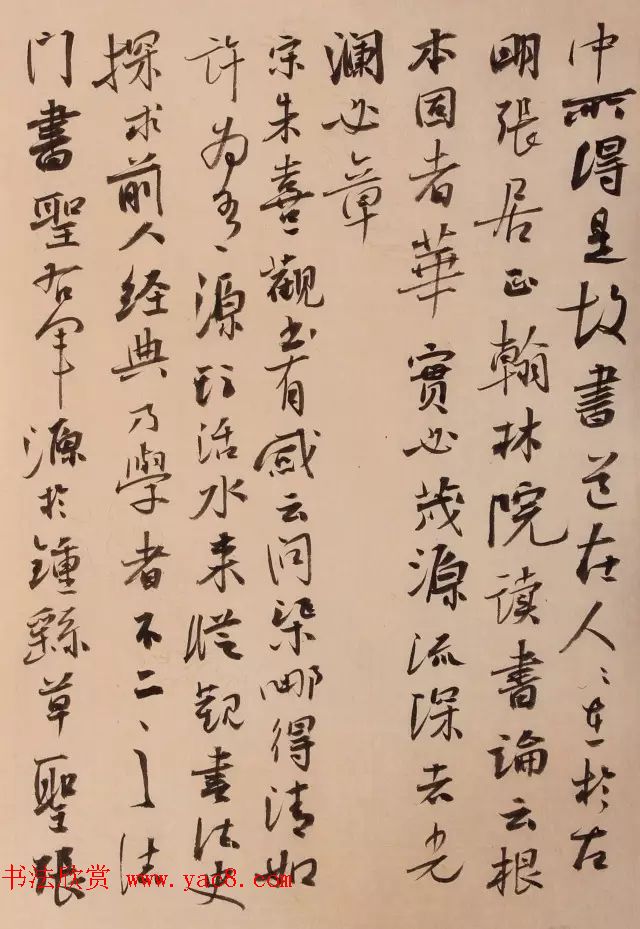 中所得是故書道在人〻在於古
明張居正翰林院读書論云根
本固者華實必茂源流深者光
瀾必章
宋朱熹觀书有感云问渠哪得清如
許为有、源头活水来縱觀書法史
探求前人经典乃學者不二、之法
门書聖右军源於鍾繇草聖張
书法欣赏 www.yac8.com